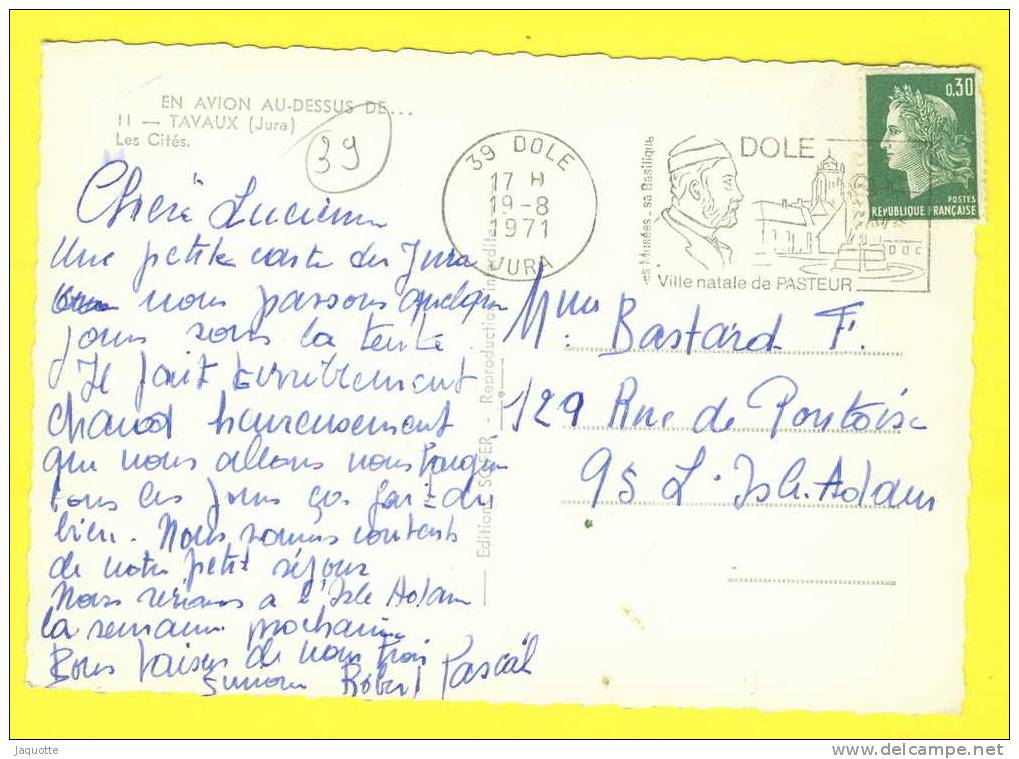 EN AVION AU-DESSUS DE...
11 — TAVAUX (Jura)
Les Cités.
39
Chère Lucienne
Une petite carte du Jura
nous passons quelques
jours sous la tente.
Il fait terriblement
chaud heureusement
que nous allons nous baigner
tous les jours ça fait du
bien. Nous sommes contents
de notre petit séjour
Nous serons a l'Isle Adam
la semaine prochaine
Bons baisers de nous trois
Simone Robert Pascal
Editions SOFER - Reproduction interdite
39 DOLE
17 H
19-8
1971
JURA
DOLE
ses Musées_sa Basilique
DUC
Ville natale de PASTEUR
0,30
POSTES
REPUBLIQUE FRANÇAISE
Mme Bastard F.
129 Rue de Pontoise
95 L'Isle.Adam
Jaquotte
www.delcampe.net